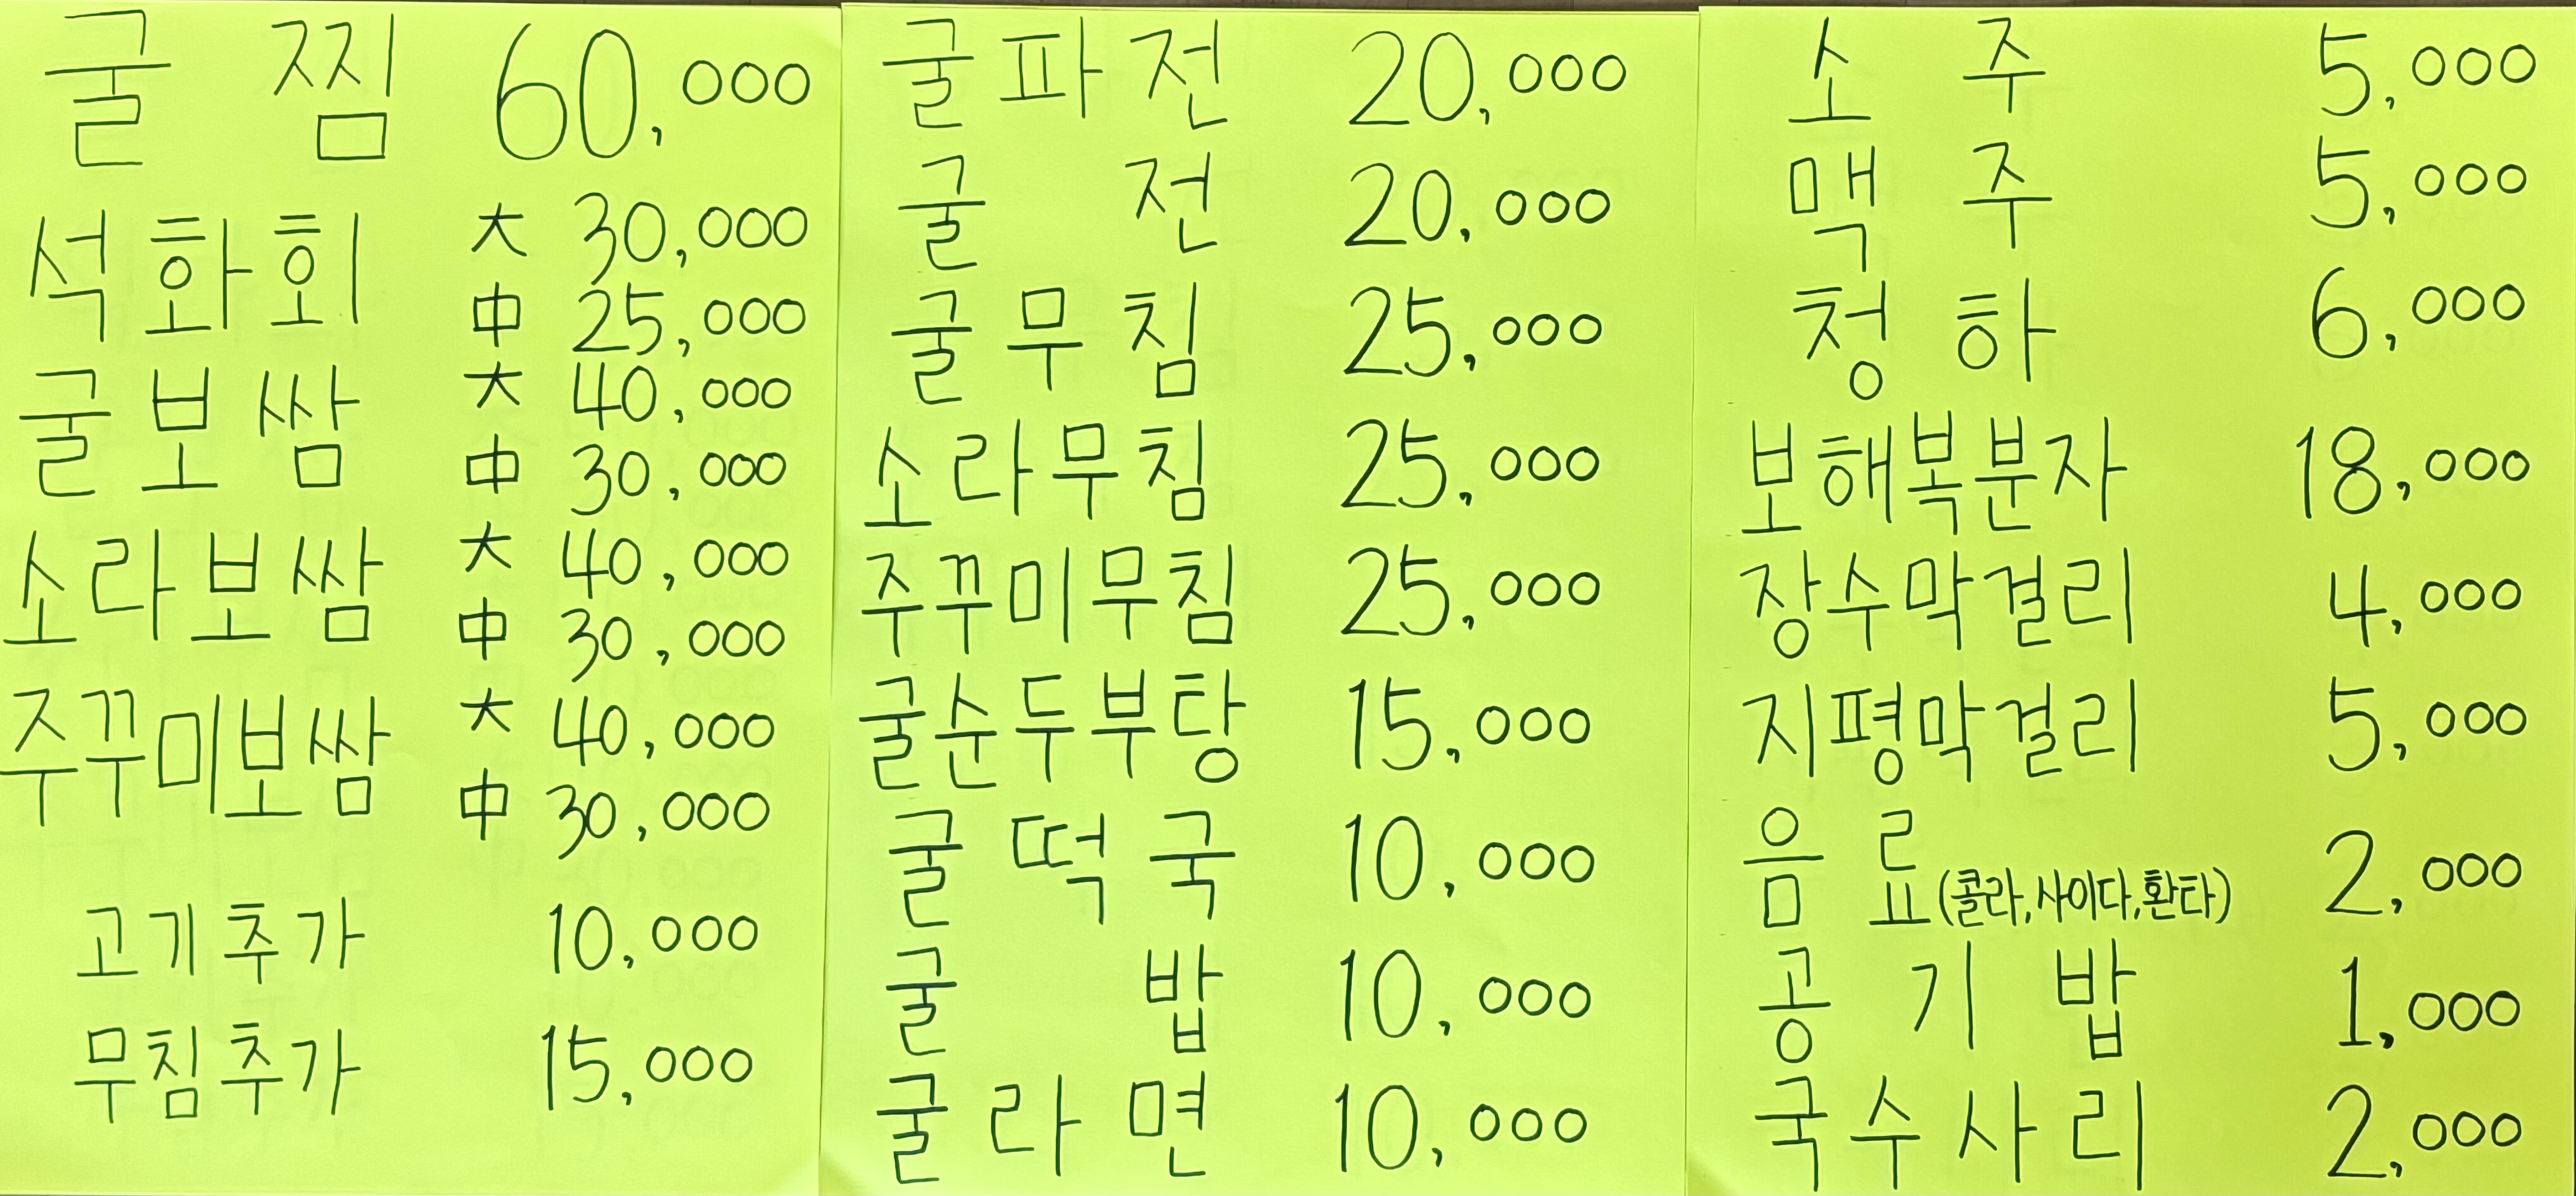 굴 찜 60,000
석화회 大 30,000
中 25,000
굴보쌈 大 40,000
中 30,000
소라보쌈 大 40,000
中 30,000
주꾸미보쌈 大 40,000
中 30,000
고기추가 10,000
무침추가 15,000
굴파전 20,000
굴 전 20,000
굴무침 25,000
소라무침 25,000
주꾸미무침 25,000
굴순두부탕 15,000
굴떡국 10,000
굴 밥 10,000
굴라면 10,000
소주 5,000
맥주 5,000
청하 6,000
보해복분자 18,000
장수막걸리 4,000
지평막걸리 5,000
음료(콜라,사이다,환타) 2,000
공기밥 1,000
국수사리 2,000